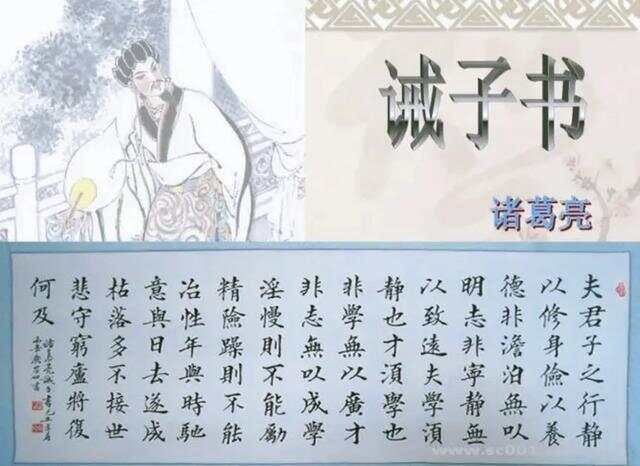 诫子书
诸葛亮
夫君子之行静
以修身儉以養
德非澹泊無以
明志非寧静無
以致遠夫學湏
静也才湏學也
非學無以廣才
非志無以成學
淫慢則不能勵
精險躁則不能
冶性年與時馳
意與日去遂成
枯落多不接世
悲守窮廬將復
何及
諸葛亮誡子書
www.sc001